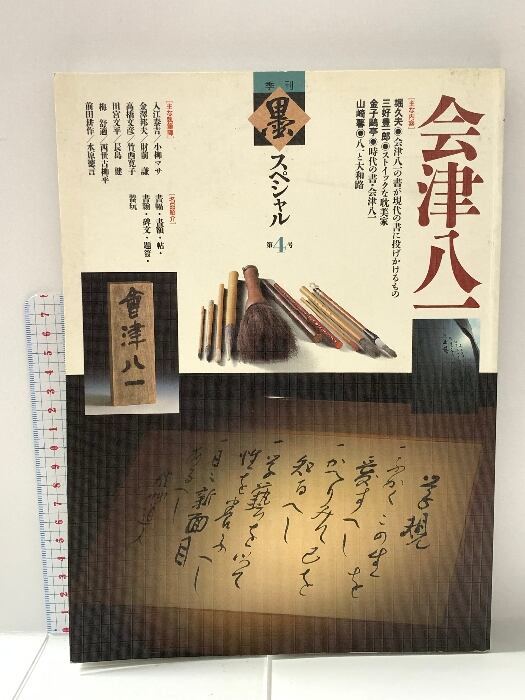 会津八一
季刊
墨
スペシャル
第4号
[主な内容]
堀久夫●会津八一の書が現代の書に投げかけるもの
三好豊一郎●ストイックな耽美家
金子鷗亭●時代の書・会津八一
山崎馨●八一と大和路
[主な執筆陣]
入江泰吉／小柳マサ
金澤邦夫／財前 謙
高橋文彦／竹西寛子
田宮文平／長島 健
梅 舒適／西世古柳平
前田耕作／永原徳言
[名品紹介]
書幅・書額・帖・
書簡・碑文・題簽・
磬玩
會津八一
学規
一ふかくこの生を
愛すへし
一かへりみて己を
知るへし
一学藝を以て
性を養ふへし
一日々新面目
あるへし